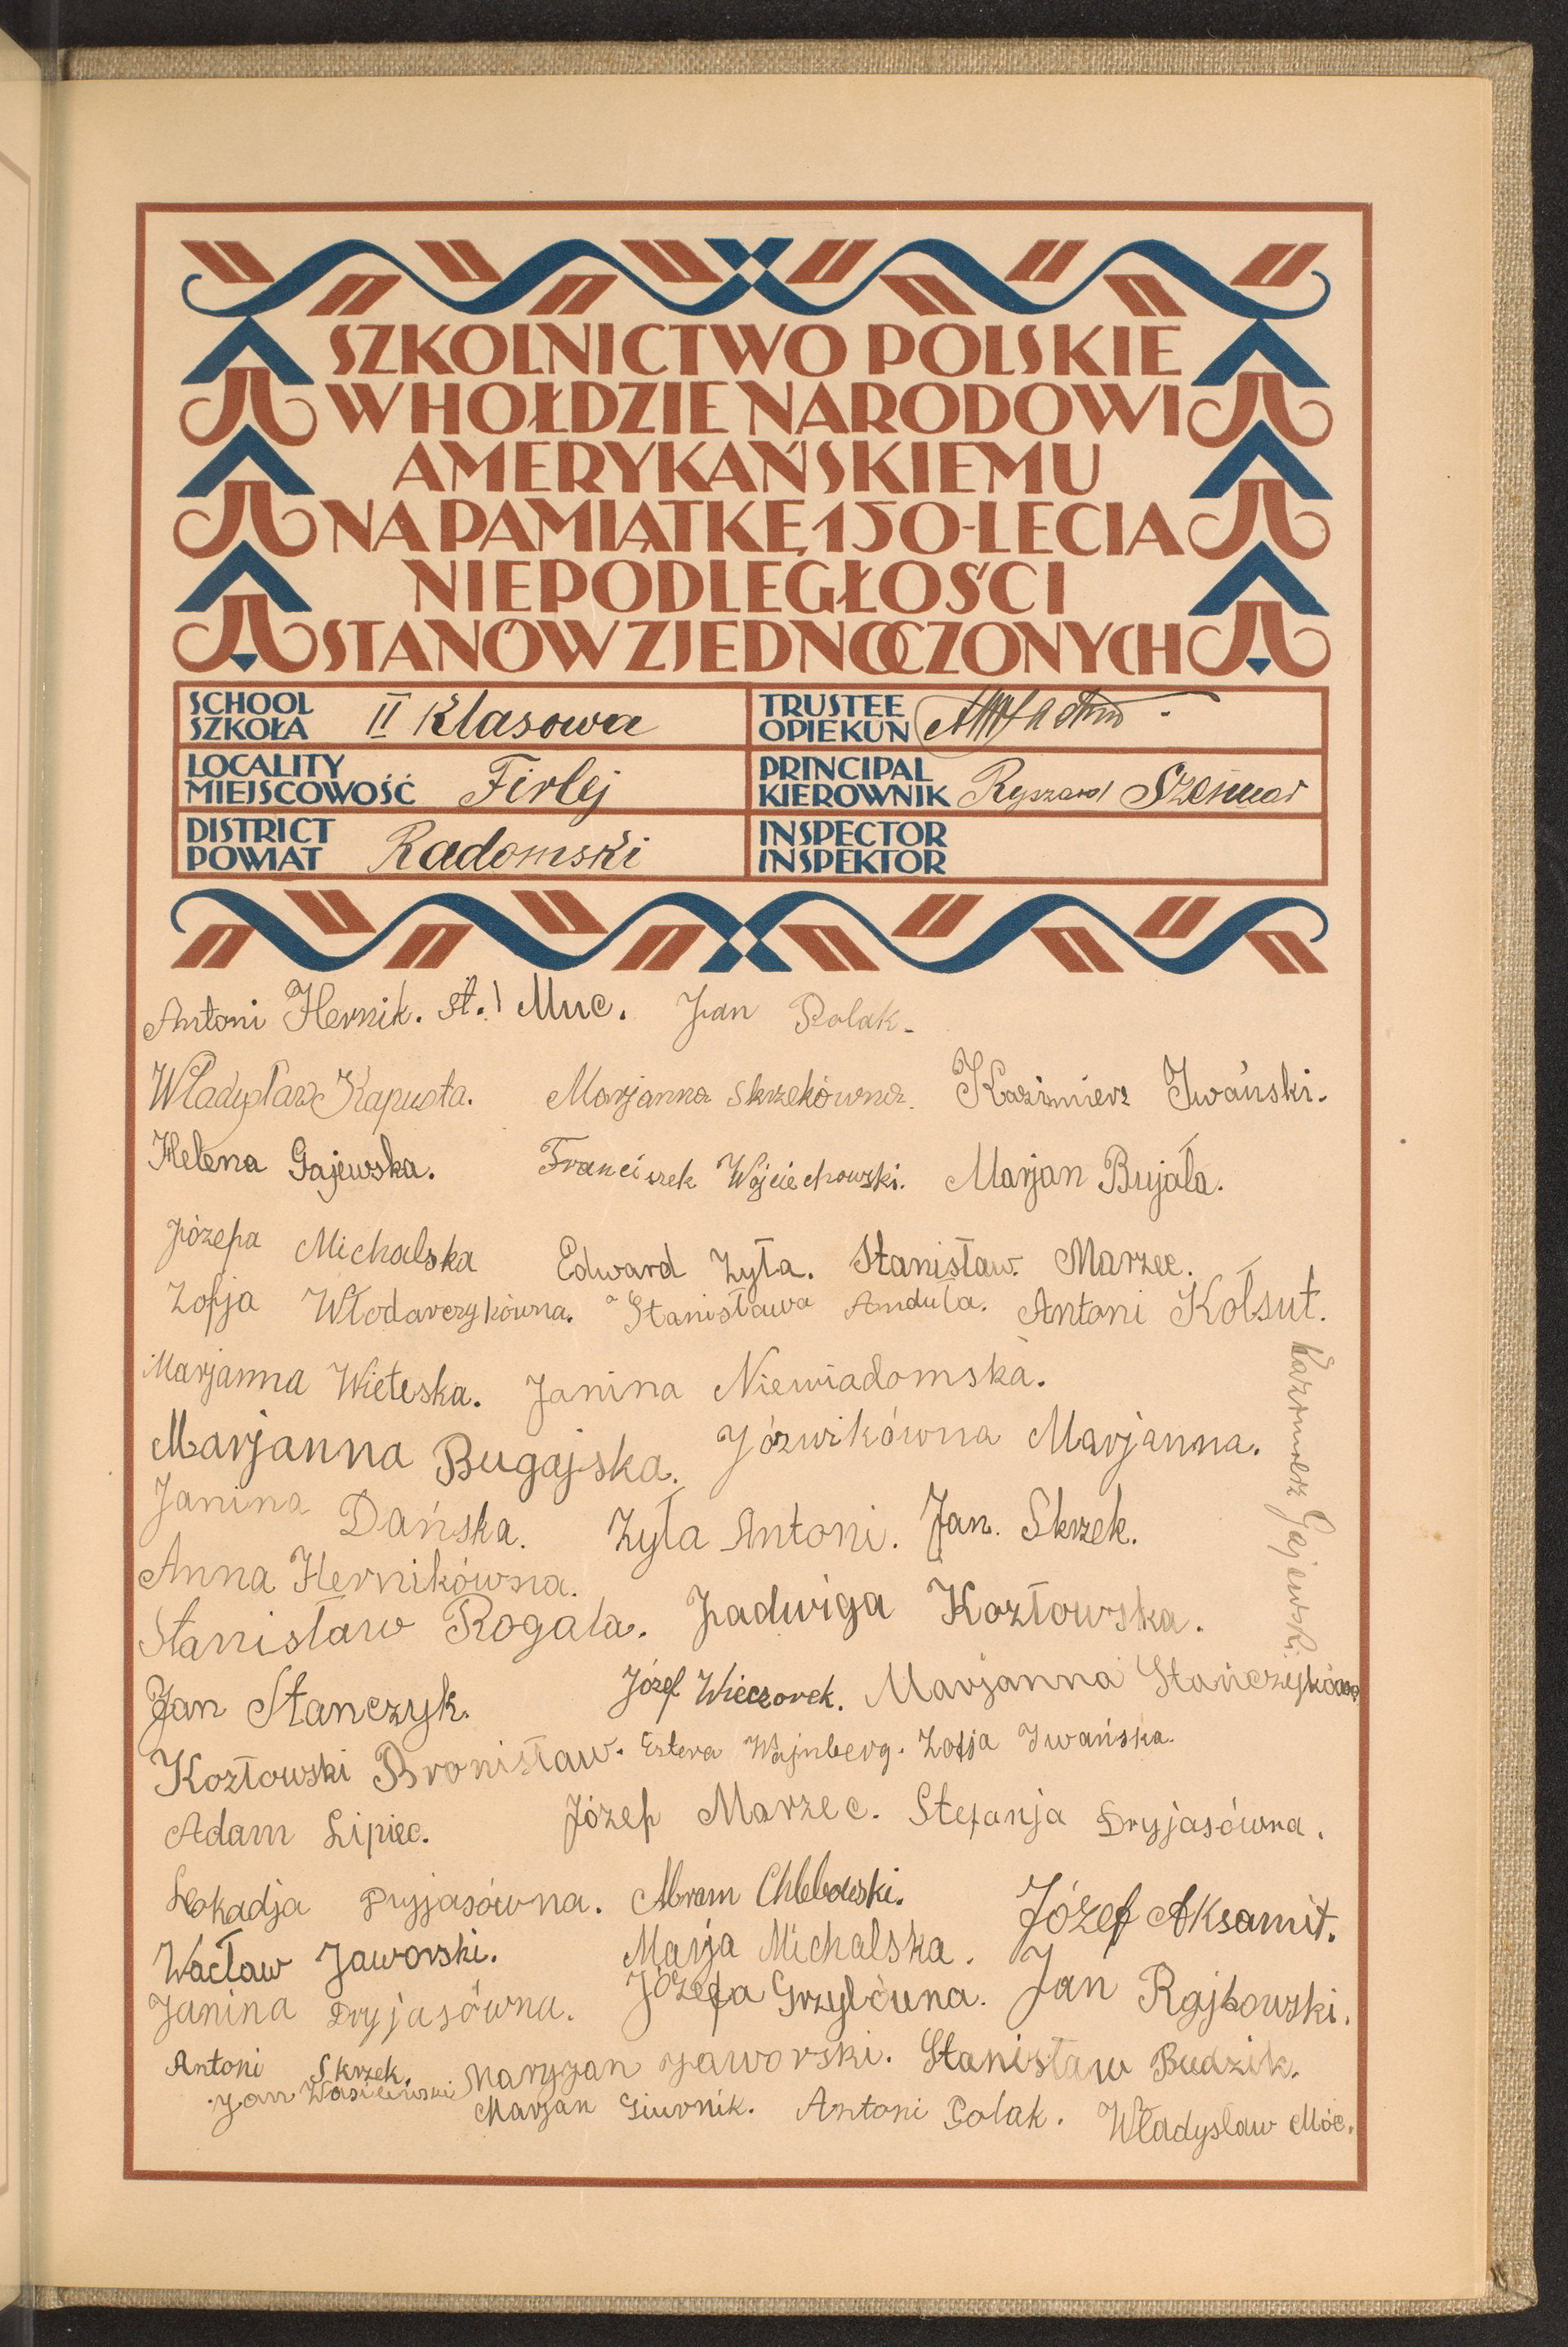 SZKOLNICTWO POLSKIE
W HOŁDZIE NARODOWI
AMERYKAŃSKIEMU
NA PAMIĄTKĘ 150-LECIA
NIEPODLEGŁOŚCI
STANÓW ZJEDNOCZONYCH
SCHOOL
SZKOŁA II Klasowa
TRUSTEE
OPIEKUN
LOCALITY
MIEJSCOWOŚĆ Firlej
PRINCIPAL
KIEROWNIK Ryszard
DISTRICT
POWIAT Radomski
INSPECTOR
INSPEKTOR
Antoni Hernik. St. Muc. Jan Polak.
Władysław Kapusta. Marjanna Skrzekówna. Kazimierz Iwański.
Helena Gajewska. Franciszek Wojciechowski. Marjan Bujała.
Józefa Michalska Edward Zyła. Stanisław. Marzec.
Zofja Włodarczykówna. Stanisława Anduła. Antoni Kołsut.
Marjanna Wieteska. Janina Niewiadomska.
Marjanna Bugajska. Józwikówna Marjanna.
Kazimierz Gajewski.
Janina Dańska. Zyła Antoni. Jan. Skrzek.
Anna Hernikówna.
Stanisław Rogala. Jadwiga Kozłowska.
Jan Stanczyk. Józef Wieczorek. Marjanna Stańczykówna
Kozłowski Bronisław. Estera Wajnberg. Zofja Iwańska.
Adam Lipiec. Józef Marzec. Stefanja Dryjasówna.
Leokadja Dryjasówna. Abram Chlebowski. Józef Aksamit.
Wacław Jaworski. Marja Michalska.
Janina Dryjasówna. Józefa Grzybówna. Jan Rajkowski.
Antoni Skrzek. Maryjan Jaworski. Stanisław Budzik.
Jan Wasilewski Marjan Giurnik. Antoni Polak. Władysław Móc.